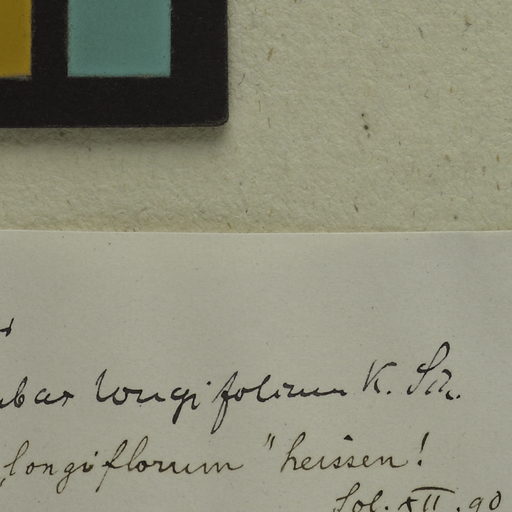 longifolium K. Sch.
„longiflorum" heissen!
Sol. XII. 90